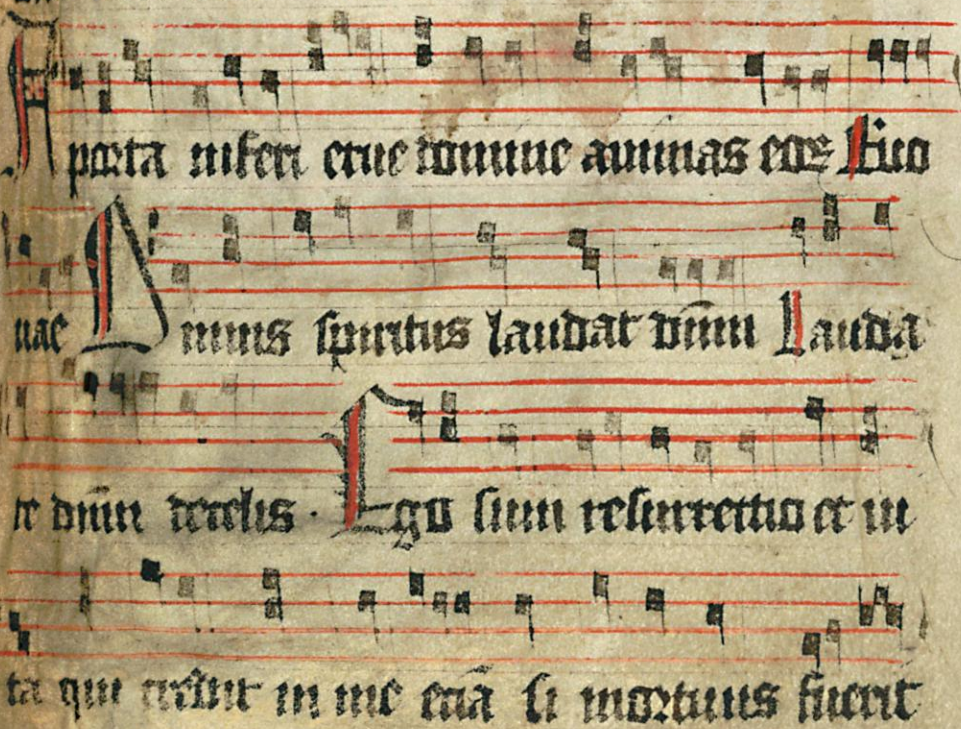 A porta inferi erue domine animas eorum Ego
uae Omnis spiritus laudat dnm Lauda
te dnm de celis · Ego sum resurrectio et ui
ta qui credit in me eciā si mortuus fuerit